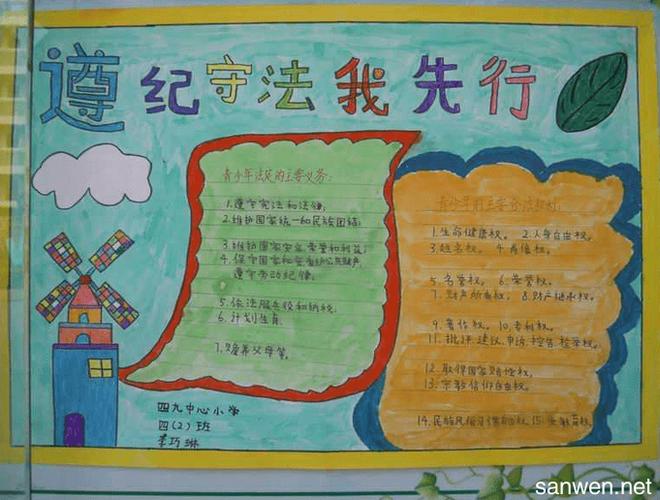 遵纪守法我先行
青少年法定的主要义务:
1.遵守宪法和法律;
2.维护国家统一和民族团结;
3.维护国家安全荣誉和利益;
4.保守国家秘密爱护公共财产,
遵守劳动纪律.
5.依法服兵役和纳税.
6.计划生育.
7.赡养父母等.
青少年的主要合法权利:
1.生命健康权。 2.人身自由权。
3.姓名权。 4.肖像权。
5.名誉权。 6.荣誉权。
7.财产所有权。 8.财产继承权。
9.著作权。 10.专利权。
11.批评.建议.申诉.控告.检举权。
12.取得国家赔偿权。
13.宗教信仰自由权。
14.民族风俗习惯自由权.15.受教育权.
四九中心小学
四(2)班
李巧琳
sanwen.net